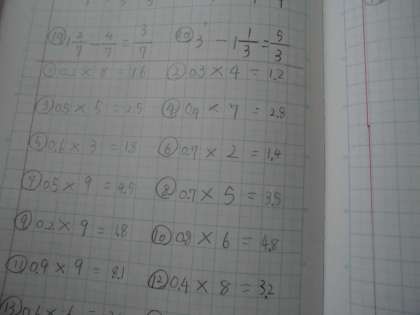 ⑲ 1 2/7 - 4/7 = 5/7 ⑳ 3 - 1 1/3 = 5/3
① 0.2 × 8 = 1.6 ② 0.3 × 4 = 1.2
③ 0.5 × 5 = 2.5 ④ 0.4 × 7 = 2.8
⑤ 0.6 × 3 = 1.8 ⑥ 0.7 × 2 = 1.4
⑦ 0.5 × 9 = 4.5 ⑧ 0.7 × 5 = 3.5
⑨ 0.2 × 9 = 1.8 ⑩ 0.8 × 6 = 4.8
⑪ 0.9 × 9 = 8.1 ⑫ 0.4 × 8 = 3.2
⑬